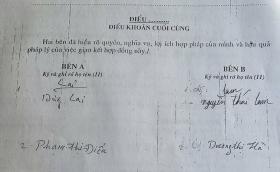 ĐIỀU
ĐIỀU KHOẢN CUỐI CÙNG
Hai bên đã hiểu rõ quyền, nghĩa vụ, lợi ích hợp pháp của mình và hậu quả
pháp lý của việc giao kết hợp đồng này./.
BÊN A
BÊN B
Ký và ghi rõ họ tên (11)
Ký và ghi rõ họ tên (11)
Lai
Lai
nguyễn Thái Lam
2. Phạm Thị Diễn
2. Dương Thị Hà